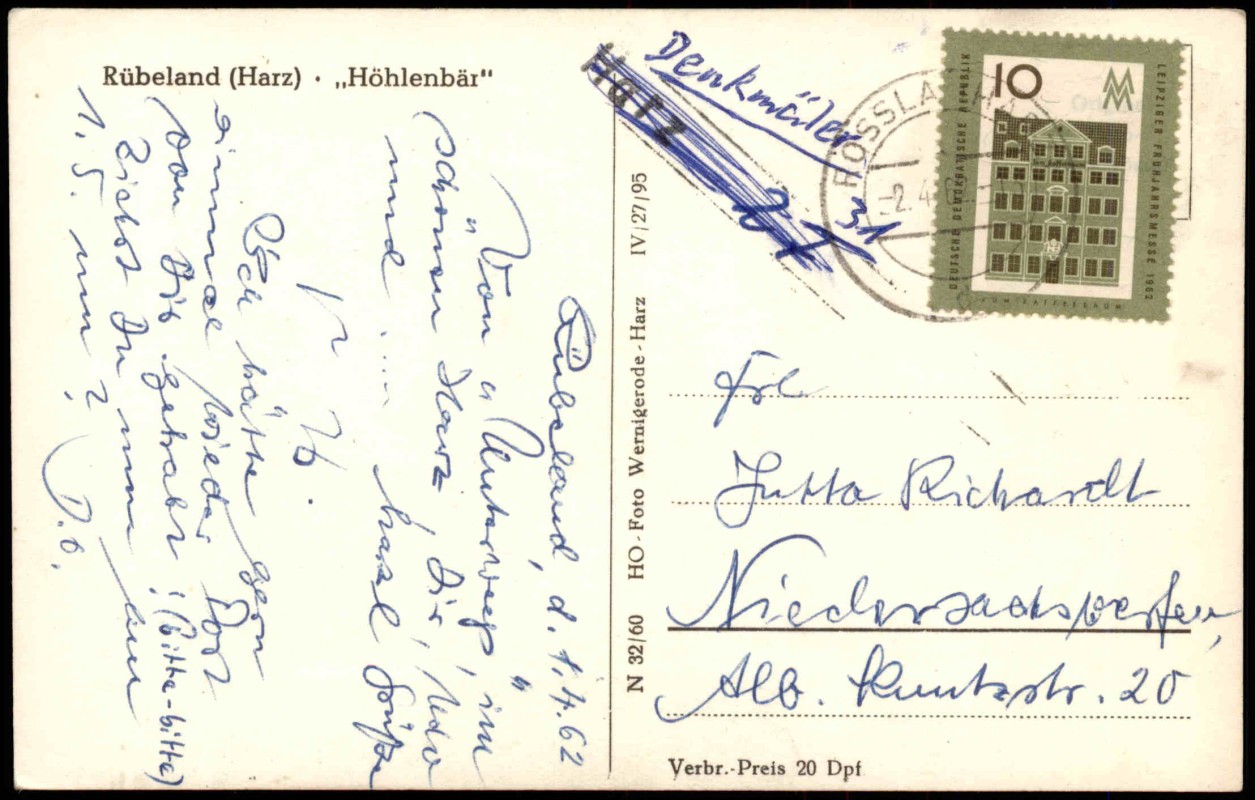 Rübeland (Harz) · „Höhlenbär"
Rübeland, d. 1.4.62
Von "Unterwegs" im
schönen Harz Dir,
und ... herzl. Grüße
Ich hätte gern
einmal wieder Post
von Dir gehabt! (bitte-bitte)
Ziehst Du nun um
1. 5. um?
D. O.
N 32/60 HO-Foto Wernigerode-Harz IV/27/95
Harz
Denkmäler
31
ROSSLA
-2.4.
10
MM
DEUTSCHE DEMOKRATISCHE REPUBLIK
LEIPZIGER FRÜHJAHRSMESSE 1962
ZUM KAFFEEBAUM
Frl
Jutta Richardt
Niedersachswerfen,
Alb. Kuntzstr. 20
Verbr.-Preis 20 Dpf